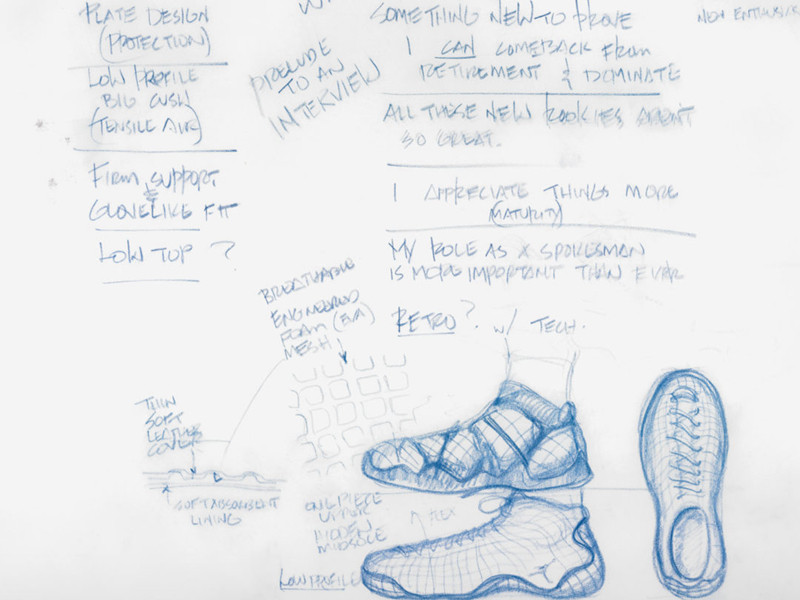 PLATE DESIGN
(PROTECTION)
LOW PROFILE
BIG CUSH
(TENSILE AIR)
FIRM SUPPORT
&
GLOVELIKE FIT
LOW TOP ?
PRELUDE
TO AN
INTERVIEW
SOMETHING NEW TO PROVE
I CAN COMEBACK FROM
RETIREMENT & DOMINATE
ALL THESE NEW ROOKIES AREN'T
SO GREAT.
I APPRECIATE THINGS MORE
(MATURITY)
MY ROLE AS A SPOKESMAN
IS MORE IMPORTANT THAN EVER
RETRO? w/ TECH.
BREATHABLE
ENGINEERED
FOAM (EVA)
MESH!
THIN
SOFT
LEATHER
COVER
SOFT ABSORBENT
LINING
ONE PIECE
UPPER
HIDDEN
MIDSOLE
FLEX
LOW PROFILE